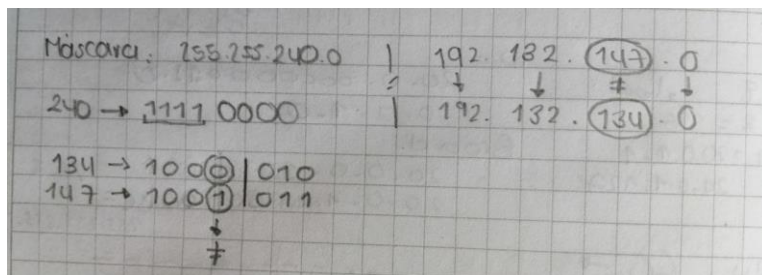 Máscara: 255.255.240.0 | 192. 132. 147. 0
= ↓ ↓ ≠ ↓
240 → 1111 0000 | 192. 132. 134. 0
134 → 1000|010
147 → 1001|011
↓
≠